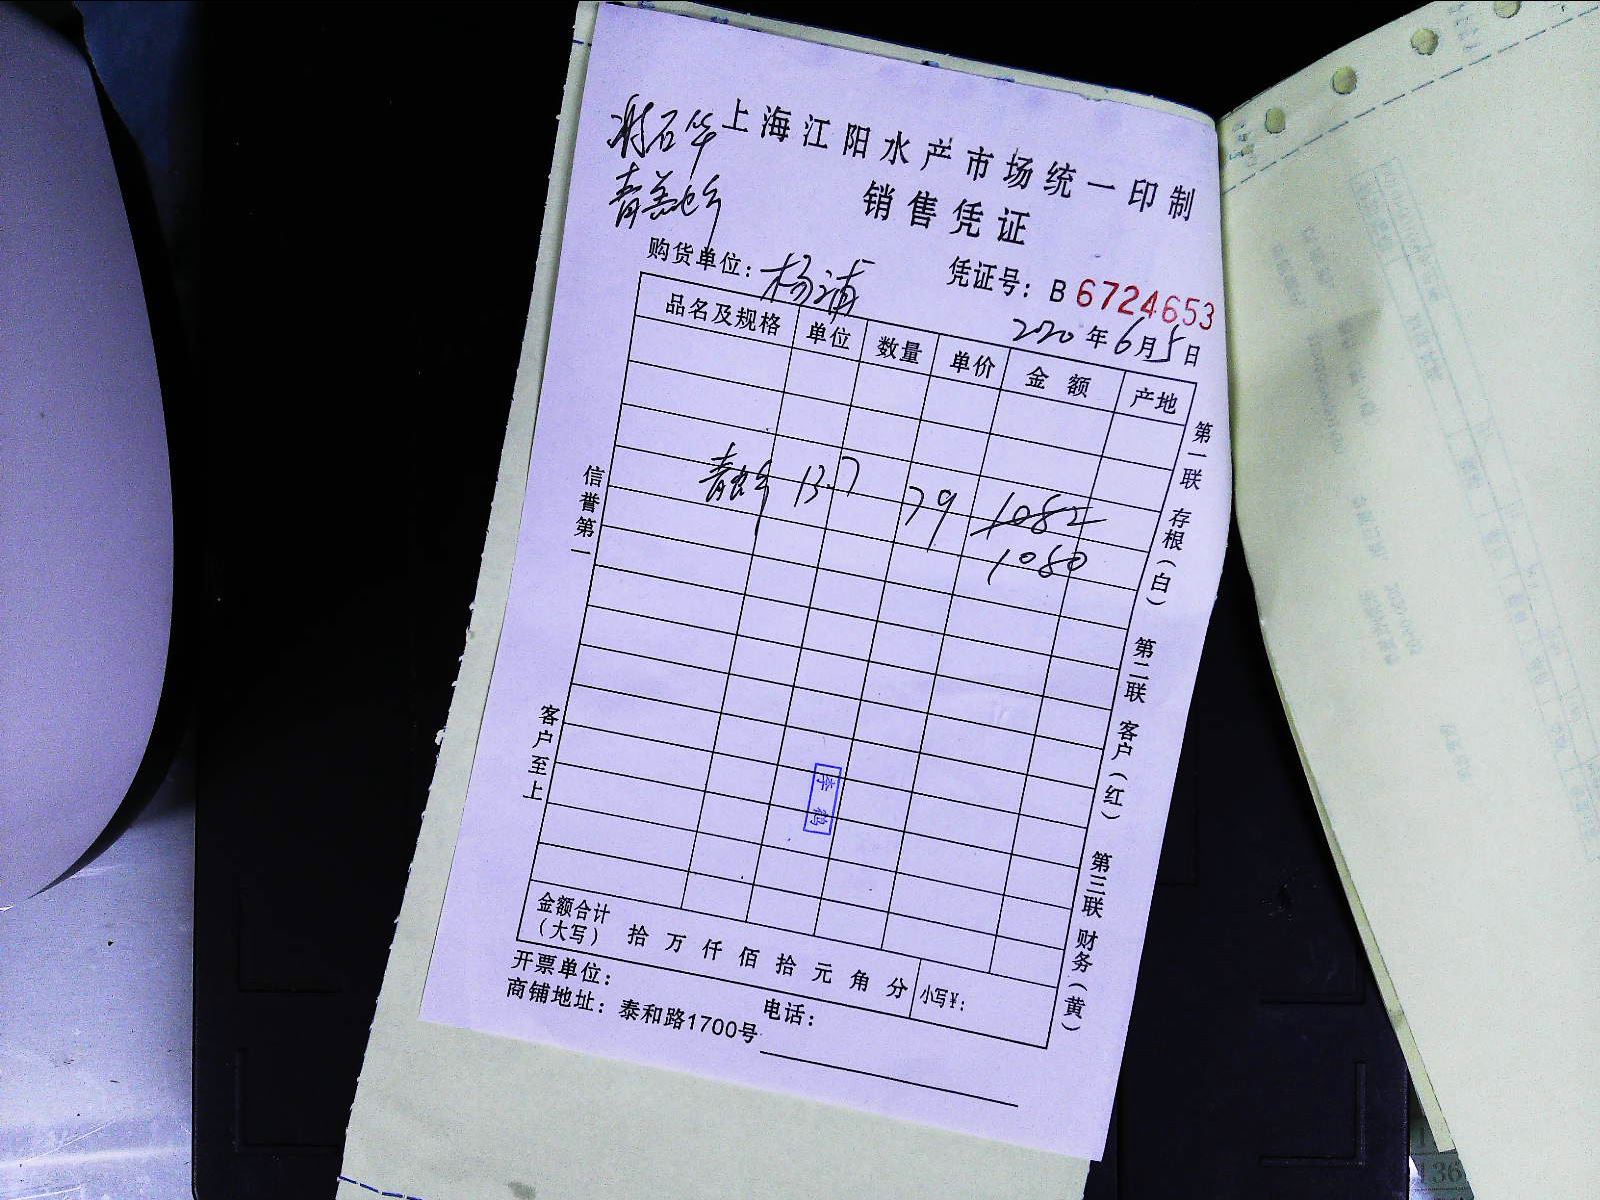 谢石华
青盖蛤
上海江阳水产市场统一印制
销售凭证
购货单位：杨浦
凭证号：B 6724653
2020年6月5日
品名及规格 单位 数量 单价 金额 产地
青蛤 13.7 79 1082
1080
金额合计（大写） 拾 万 仟 佰 拾 元 角 分 小写¥：
开票单位：
电话：
商铺地址：泰和路1700号
信誉第一
客户至上
第一联 存根（白） 第二联 客户（红） 第三联 财务（黄）